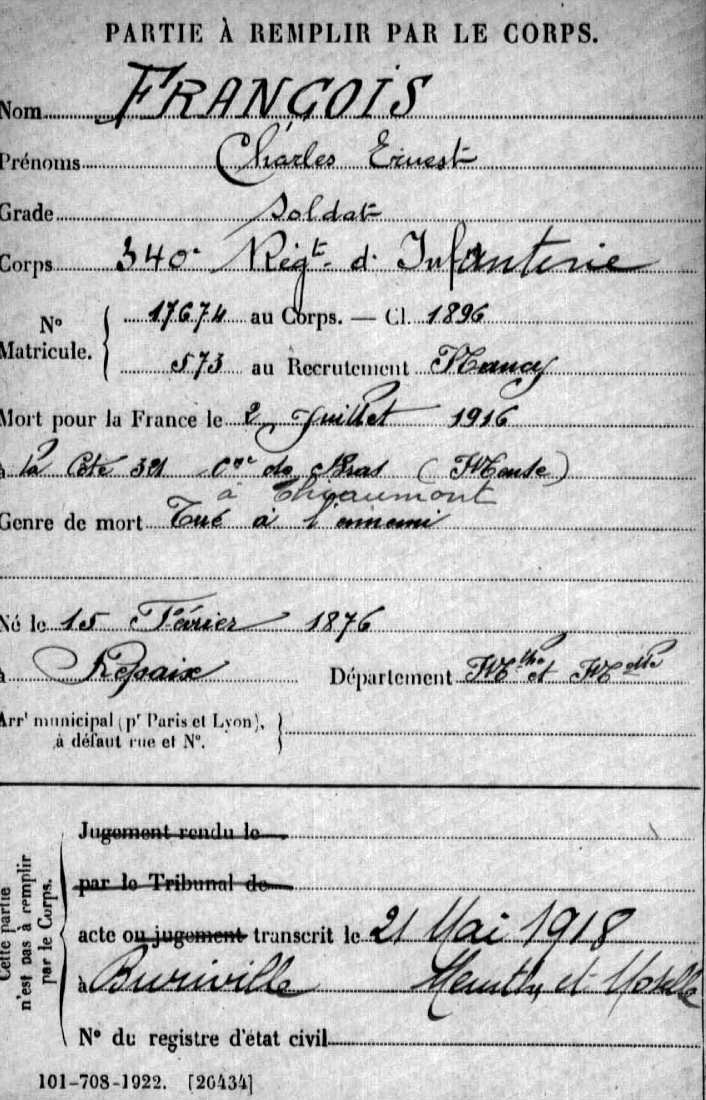 PARTIE À REMPLIR PAR LE CORPS.
Nom FRANÇOIS
Prénoms Charles Ernest
Grade Soldat
Corps 340e Régt. d'Infanterie
No Matricule. 17674 au Corps. — Cl. 1896
573 au Recrutement Nancy
Mort pour la France le 2 Juillet 1916
à la Côte 321 Cne de Bras (Meuse)
à Thiaumont
Genre de mort Tué à l'ennemi
Né le 15 Février 1876
à Repaix Département Mthe et Mlle
Arrt municipal (pr Paris et Lyon),
à défaut rue et No.
Cette partie
n'est pas à remplir
par le Corps.
Jugement rendu le
par le Tribunal de
acte ou jugement transcrit le 21 Mai 1918
à Buriville Meurthe et Moselle
No du registre d'état civil
101-708-1922. [26434]